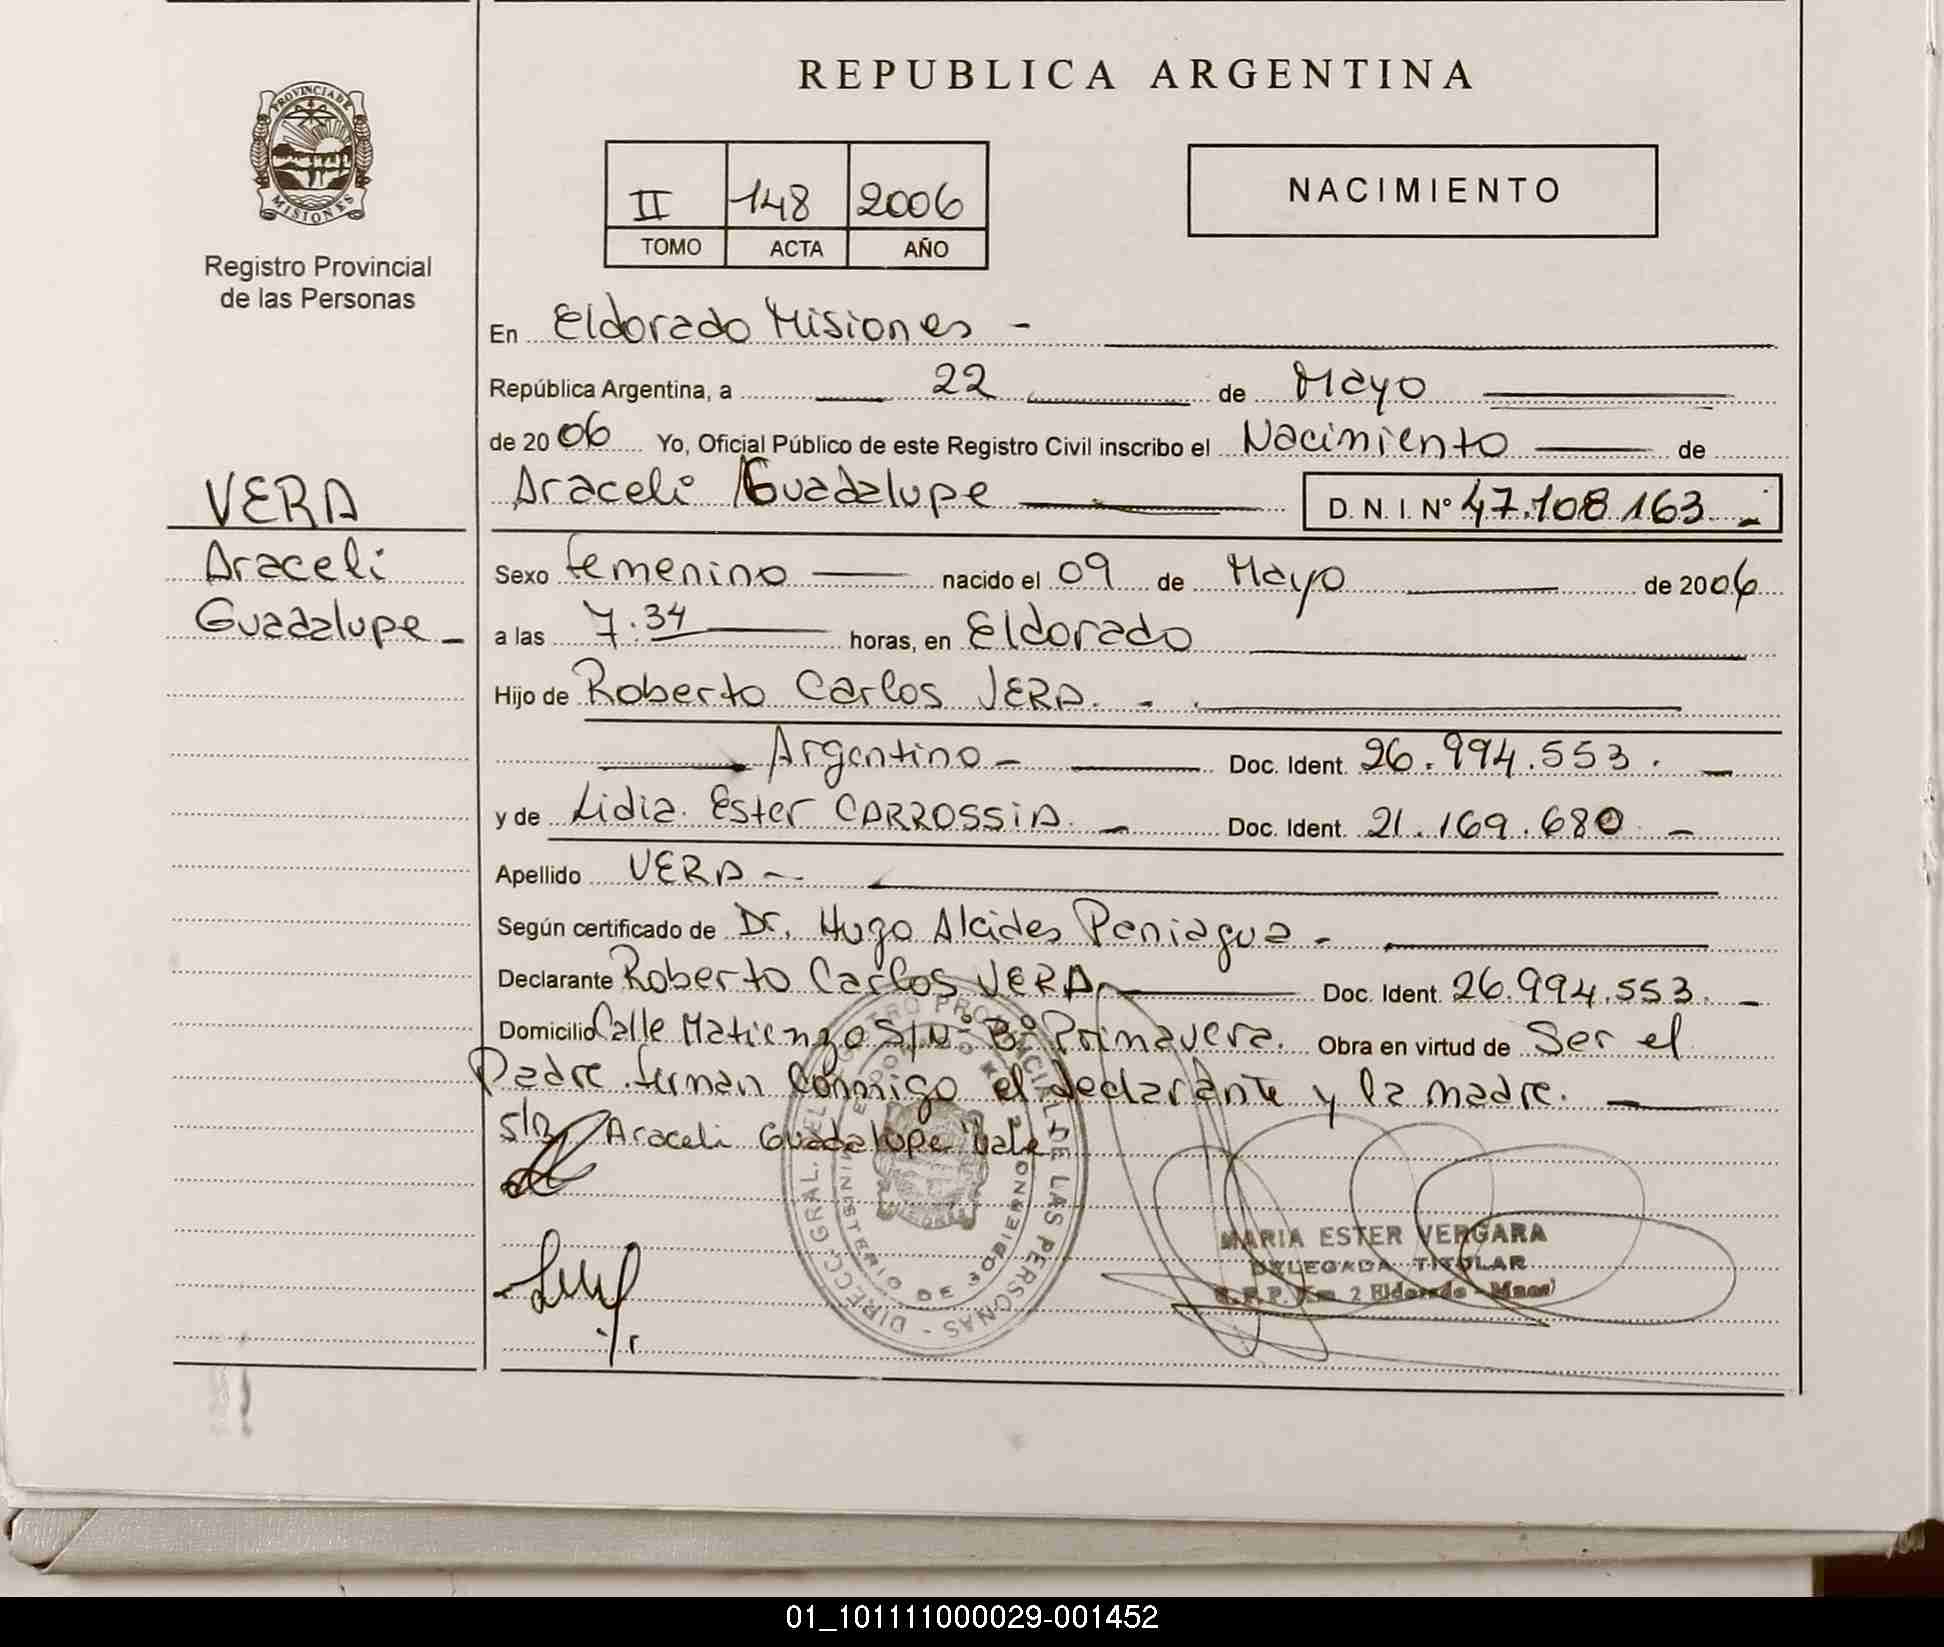 REPUBLICA ARGENTINA
PROVINCIA DE
MISIONES
Registro Provincial
de las Personas
II 148 2006
TOMO ACTA AÑO
NACIMIENTO
En Eldorado Misiones -
República Argentina, a 22 de Mayo
de 2006 Yo, Oficial Público de este Registro Civil inscribo el Nacimiento de
Araceli Guadalupe D. N. I. Nº 47.108.163. -
VERA
Araceli
Guadalupe -
Sexo femenino nacido el 09 de Mayo de 2006
a las 7.34 horas, en Eldorado
Hijo de Roberto Carlos VERA. -
Argentino - Doc. Ident. 26.994.553. -
y de Lidia Ester CARROSSIA. - Doc. Ident. 21.169.680 -
Apellido VERA -
Según certificado de Dr. Hugo Alcides Peniagua -
Declarante Roberto Carlos VERA Doc. Ident. 26.994.553. -
Domicilio Calle Matienzo S/Nº Bº Primavera. Obra en virtud de Ser el
Padre. firman conmigo el declarante y la madre.
S/R Araceli Guadalupe "Vale
DIRECC. GRAL. DEL REGISTRO PROVINCIAL DE LAS PERSONAS -
MINISTERIO DE GOBIERNO
MARIA ESTER VERGARA
DELEGADA TITULAR
R.P.P. Km. 2 Eldorado - Mnes)
01_101111000029-001452